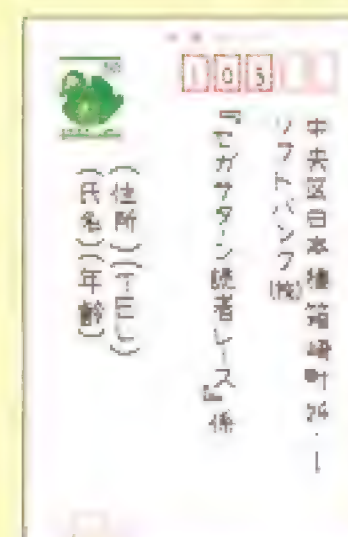 103
中央区日本橋箱崎町24-1
ソフトバンク(株)
『セガサターン読者レース』係
(住所)(TEL)
(氏名)(年齢)